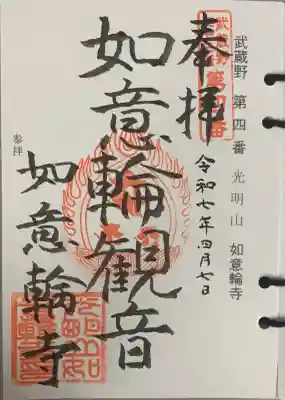 武蔵野 第四番 光明山 如意輪寺
奉拝
令和七年四月七日
如意輪観音
如意輪寺
参拝